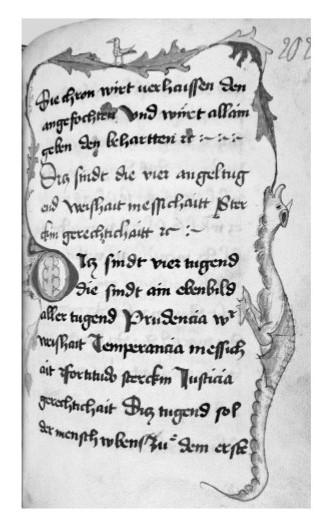 202
Die chron wirt uerhaissen den
angefochten Und wirt allain
geben den behartten rc
Ditz sindt die vier angeltug
end weishait messichaitt Ster
ckin gerechtichaitt rc
Ditz sindt vier tugend
die sindt ain ebenbild
aller tugend Prudencia wr
weishait Temperancia messich
ait Fortitudo sterckin Justicia
gerechtichait Ditz tugend sol
der mensch zu dem erste